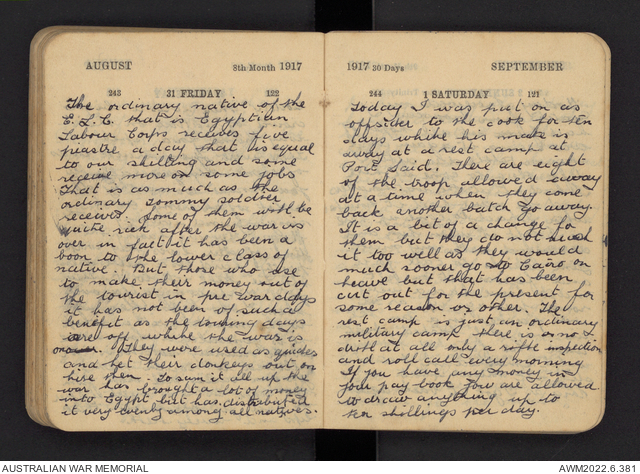 AUGUST 8th Month 1917
243 31 FRIDAY 122
The ordinary native of the
E.L.C. that is Egyptian
Labour Corps receives five
piastre a day that is equal
to our shilling and some
receive more on some jobs
That is as much as the
ordinary Tommy soldier
receives. Some of them will be
quite rich after the war is
over in fact it has been a
boon to the lower class of
native. But those who use
to make their money out of
the tourist in pre war days
it has not been of such a
benefit as the touring days
are off while the war is
on. They were used as guides
and let their donkeys out on
hire then. To sum it all up the
war has brought a lot of money
into Egypt but has distributed
it very evenly among all natives.
1917 30 Days SEPTEMBER
244 1 SATURDAY 121
Today I was put on as
offsider to the cook for ten
days while his mate is
away at a rest camp at
Port Said. There are eight
of the troop allowed away
at a time when they come
back another batch go away.
It is a bit of a change for
them but they do not
it too well as they would
much sooner go to Cairo on
leave but that has been
cut out for the present for
some reason or other. The
rest camp is just an ordinary
military camp there is no
at all only a rifle inspection
and roll call every morning
If you have any money in
your pay book you are allowed
to draw anything up to
ten shillings per day.
AUSTRALIAN WAR MEMORIAL
AWM2022.6.381